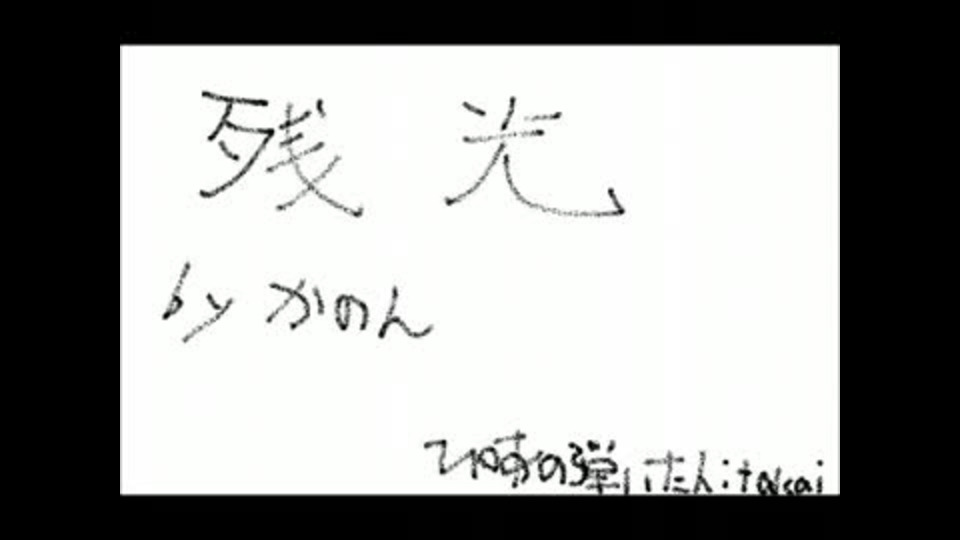 残光
by かのん
の弾いた人:takai